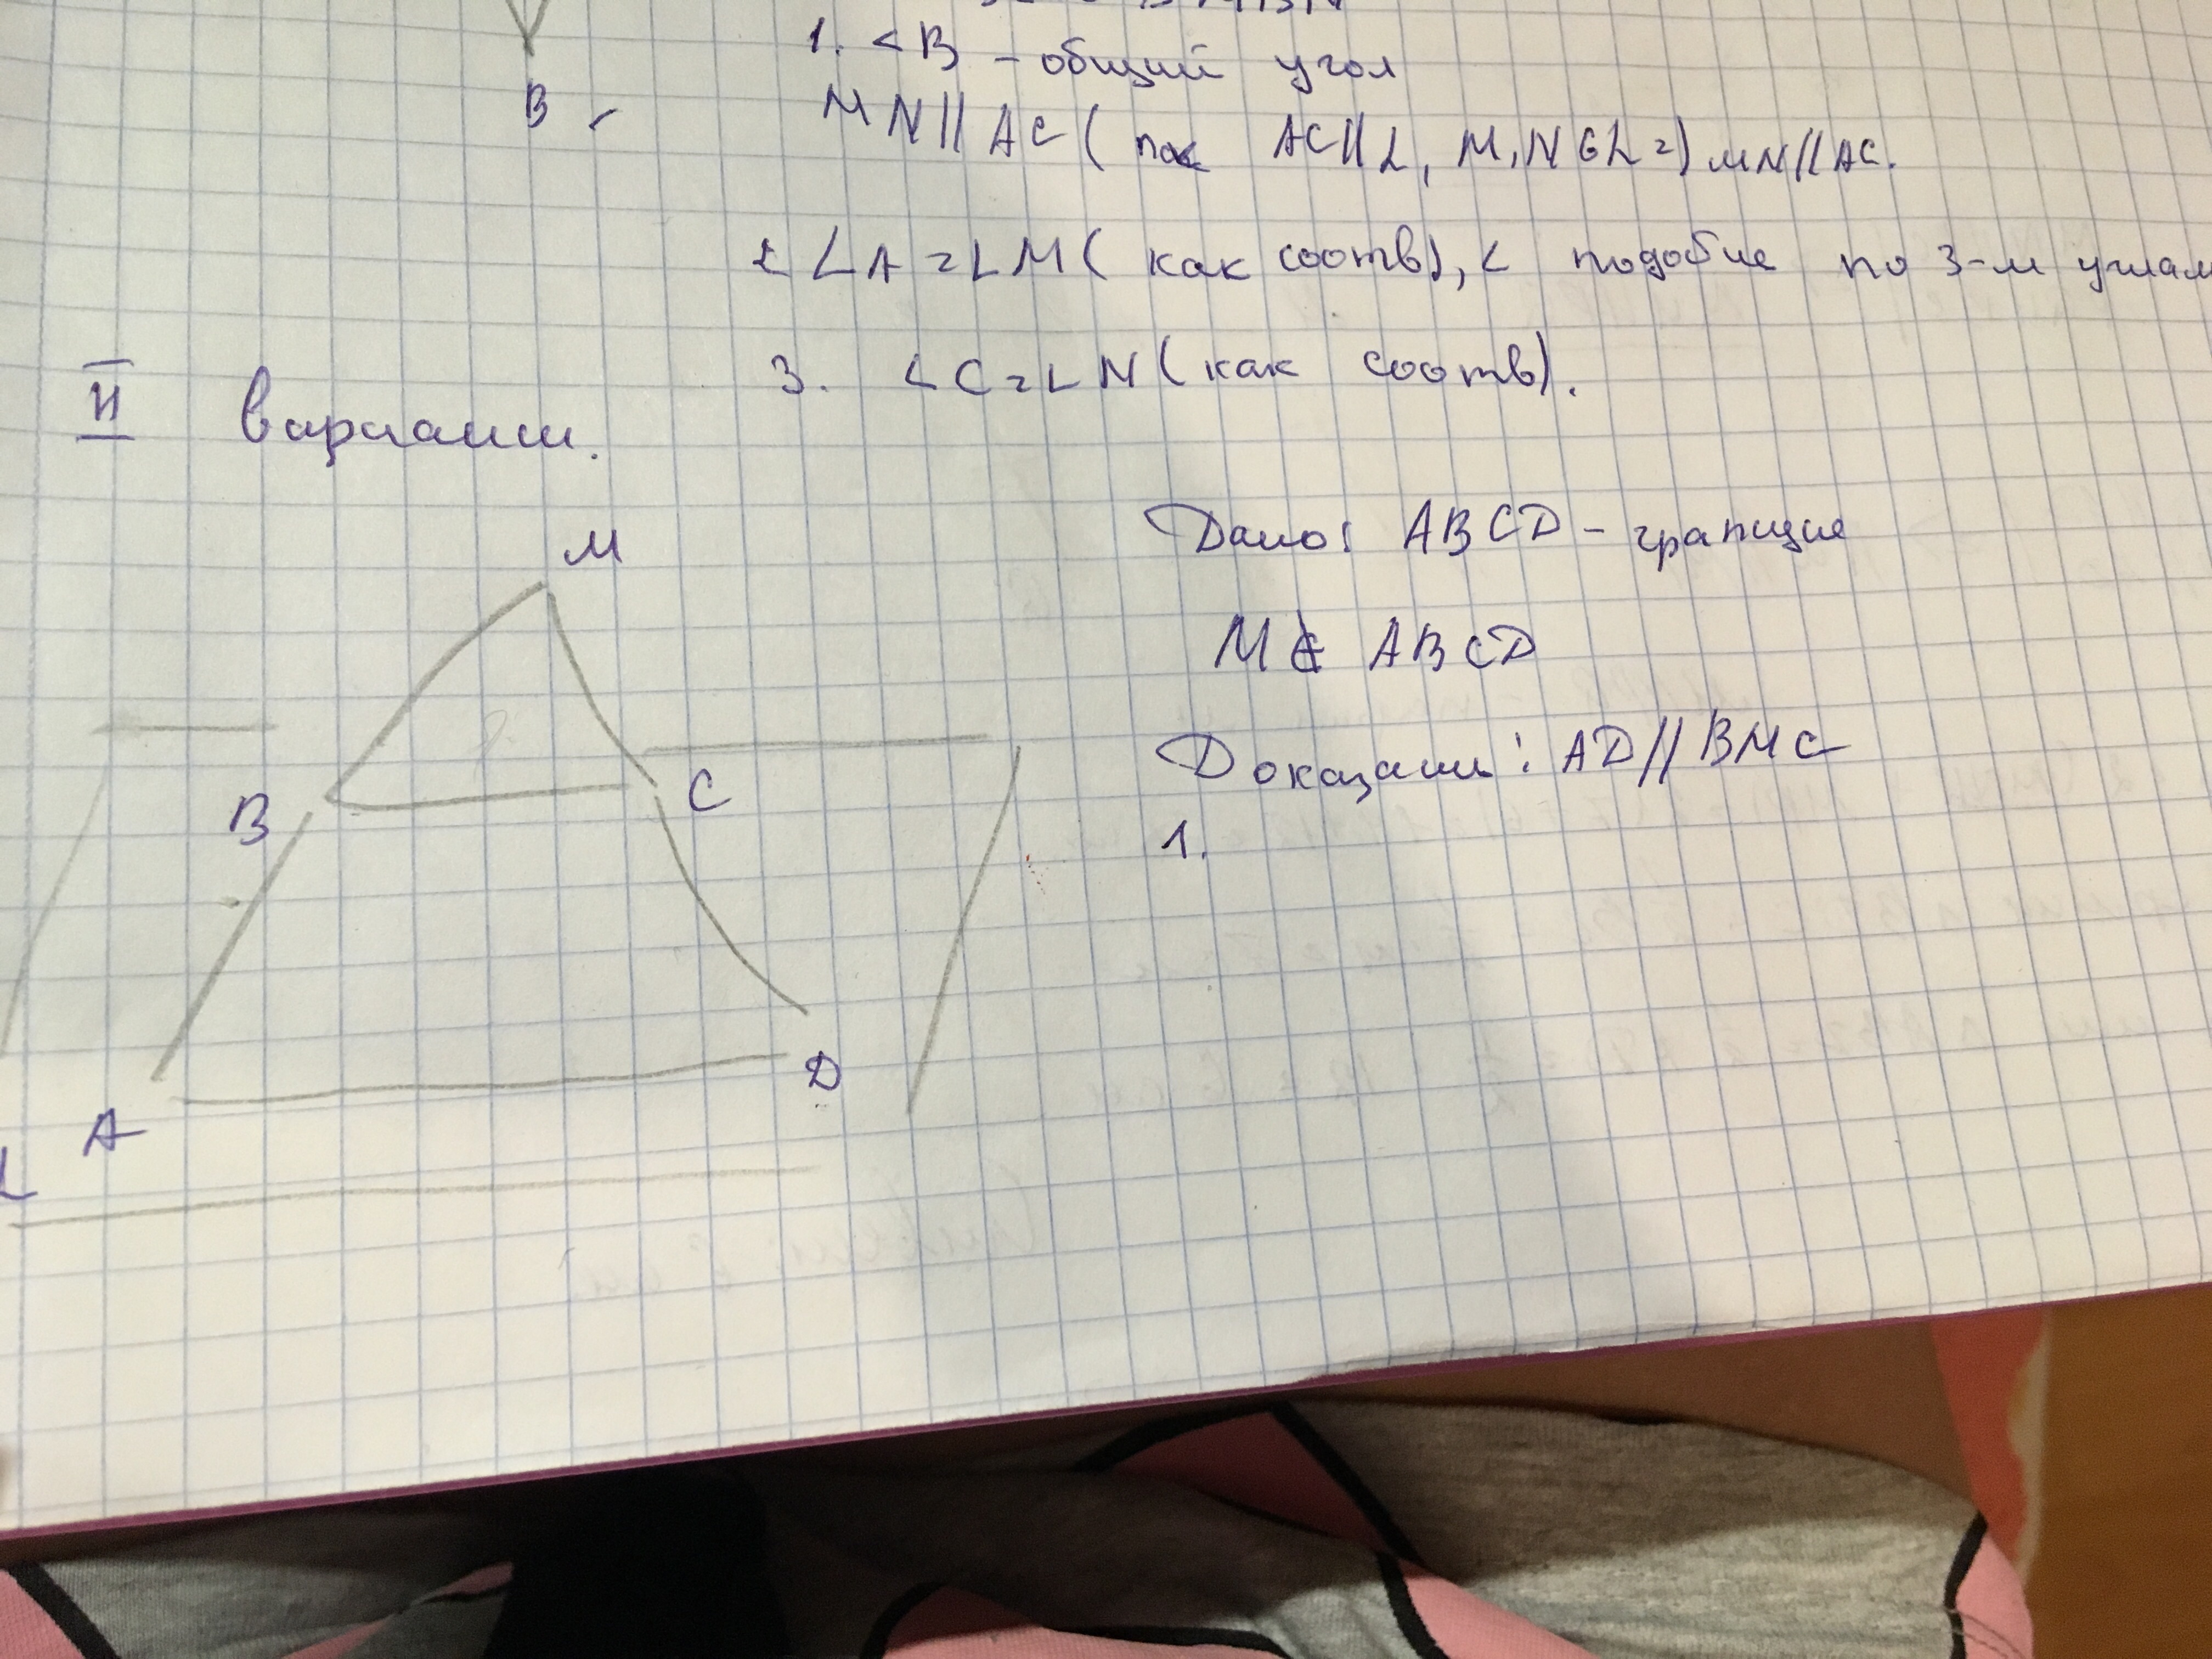 1. <B - общий угол
B
MN || AC ( так AC || L, M, N ∈ L => MN || AC.
2 ∠A = ∠M ( как соотв), < подобие по 3-м углам
3. <C = ∠N ( как соотв).
II вариант.
M
Дано: ABCD - трапеция
M ∉ ABCD
B
C
Доказать: AD // BMC
1.
A
D
L